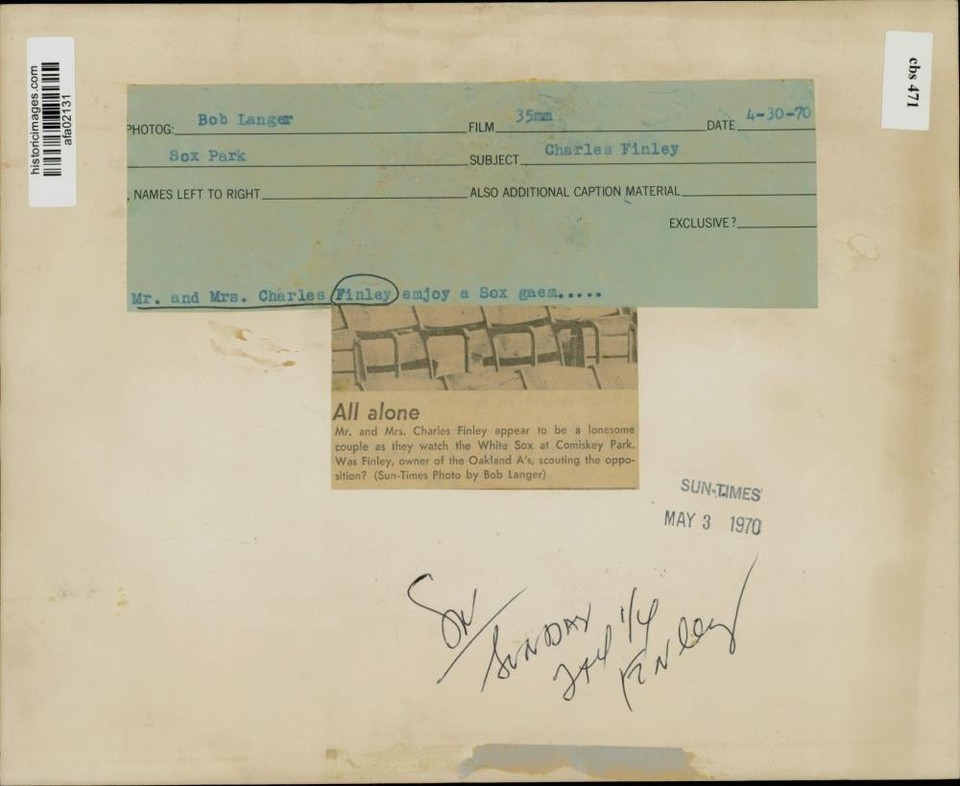 historicimages.com
afa02131
cbs 471
PHOTOG: Bob Langer FILM 35mm DATE 4-30-70
Sox Park SUBJECT Charles Finley
, NAMES LEFT TO RIGHT ALSO ADDITIONAL CAPTION MATERIAL
EXCLUSIVE?
Mr. and Mrs. Charles Finley emjoy a Sox gaem.....
All alone
Mr. and Mrs. Charles Finley appear to be a lonesome
couple as they watch the White Sox at Comiskey Park.
Was Finley, owner of the Oakland A's, scouting the oppo-
sition? (Sun-Times Photo by Bob Langer)
SUN-TIMES
MAY 3 1970
SUNDAY
Finley